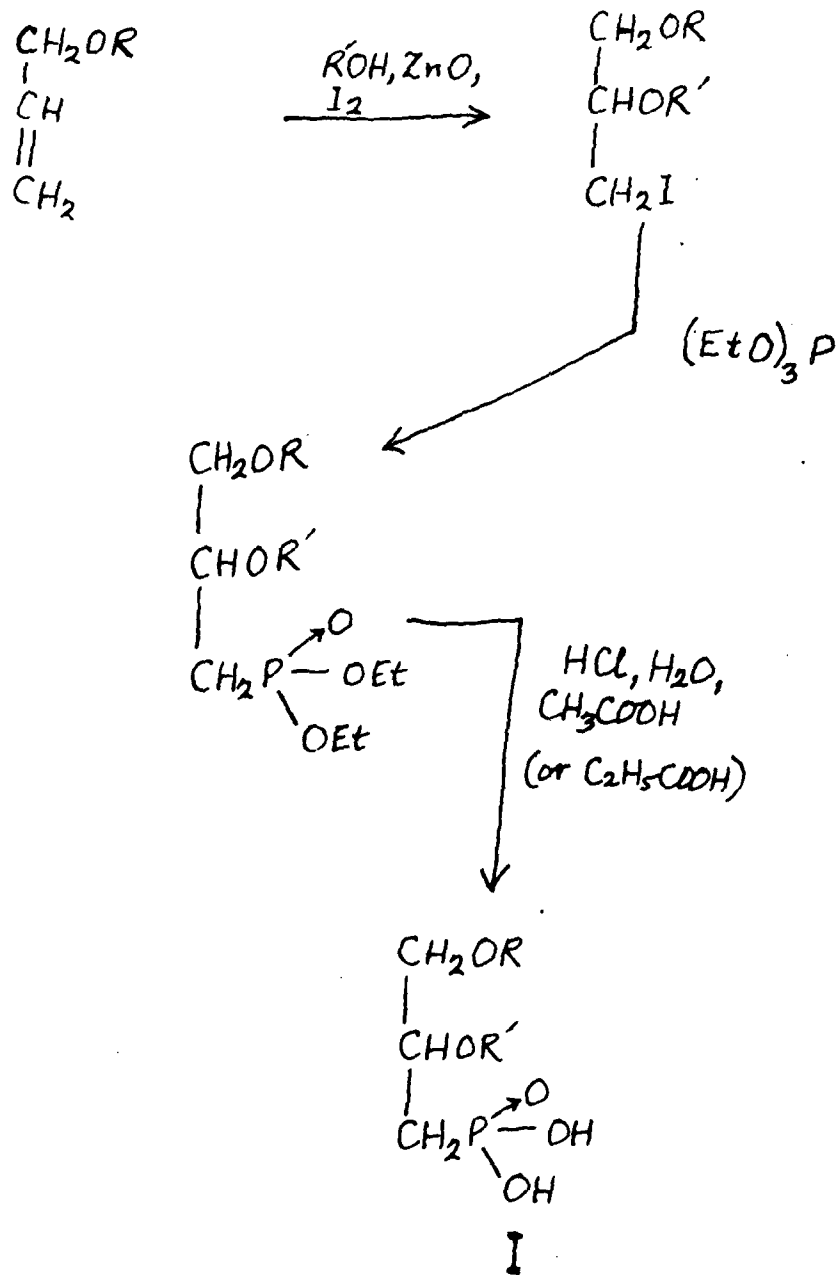 CH₂OR
CH
CH₂
R′OH, ZnO,
I₂
CH₂OR
CHOR′
CH₂I
(EtO)₃P
CH₂OR
CHOR′
O
CH₂P—OEt
OEt
HCl, H₂O,
CH₃COOH
(or C₂H₅COOH)
CH₂OR
CHOR′
O
CH₂P—OH
OH
I